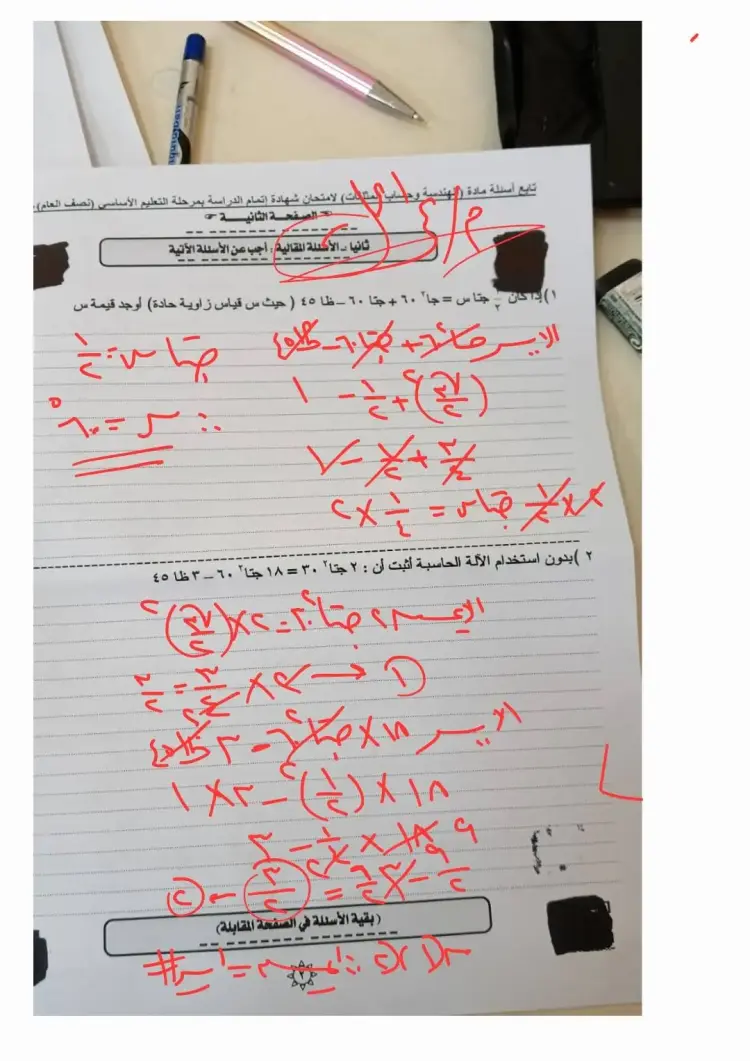 تابع أسئلة مادة (الهندسة وحساب المثلثات) لامتحان شهادة إتمام الدراسة بمرحلة التعليم الأساسي (نصف العام)
الصفحة الثانية
ثانيا - الأسئلة المقالية : أجب عن الأسئلة الآتية
١) إذا كان ١/٢ جتا س = جا٢ ٦٠ + جتا ٦٠ - ظا ٤٥ ( حيث س قياس زاوية حادة) أوجد قيمة س
الايسر جا٢ ٦٠ + جتا ٦٠ - ظا ٤٥
(√٣/٢)٢ + ١/٢ - ١
٣/٤ + ١/٢ - ١
٢ × ١/٢ جتا س = ١/٤ × ٢
جتا س = ١/٢
∴ س = ٦٠°
٢ )بدون استخدام الآلة الحاسبة أثبت أن : ٢ جتا٢ ٣٠ = ١٨ جتا٢ ٦٠ - ٣ ظا ٤٥
الايمن ٢ جتا٢ ٣٠ = ٢ × (√٣/٢)٢
٢ × ٣/٤ = ٣/٢ → ①
الايسر ١٨ × جتا٢ ٦٠ - ٣ ظا ٤٥
١٨ × (١/٢)٢ - ٣ × ١
١٨ × ١/٤ - ٣
٩/٢ - ٣ = ٣/٢ ← ②
من ① ② ∴ ايمن = ايسر #
( بقية الأسئلة في الصفحة المقابلة)
٢